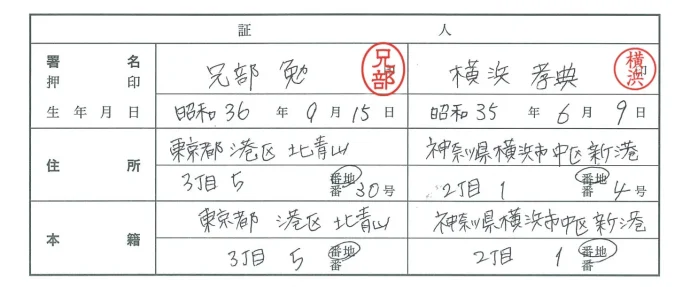 証 人
署 名 押 印 兄部 勉 兄部 横浜 孝典 横浜 印
生 年 月 日 昭和 36 年 9 月 15 日 昭和 35 年 6 月 9 日
住 所 東京都 港区 北青山 神奈川県横浜市中区新港
3丁目 5 番地 番 30 号 2丁目 1 番地 番 4 号
本 籍 東京都 港区 北青山 神奈川県横浜市中区新港
3丁目 5 番地 番 2丁目 1 番地 番